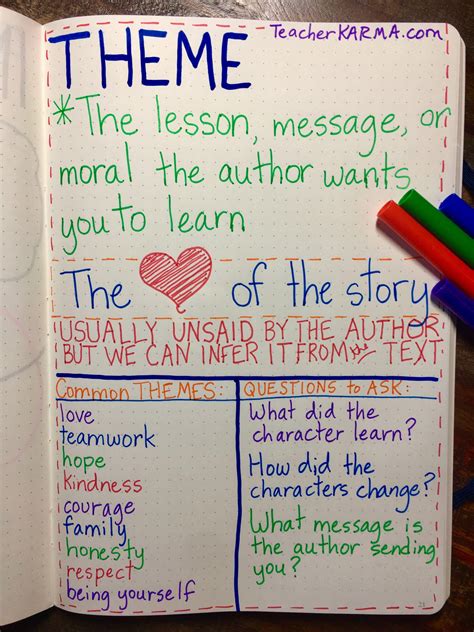 TeacherKARMA.com
THEME
*The lesson, message, or
moral the author wants
you to learn
The ❤ of the story
USUALLY UNSAID BY THE AUTHOR,
BUT WE CAN INFER IT FROM TEXT
Common THEMES:
love
teamwork
hope
kindness
courage
family
honesty
respect
being yourself
QUESTIONS to ASK:
What did the
character learn?
How did the
characters change?
What message is
the author sending
you?